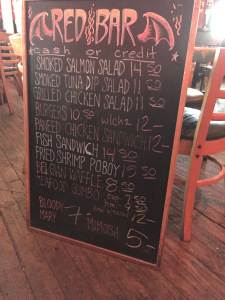 RED BAR
cash or credit
SMOKED SALMON SALAD 14 50
SMOKED TUNA DIP SALAD 11 50
GRILLED CHICKEN SALAD 11 50
BURGERS 10 50 w/chz 12-
PANEED CHICKEN SANDWICH 12-
FISH SANDWICH 14 50
FRIED SHRIMP POBOY 15 50
BELGIAN WAFFLE 8 50
SEAFOOD GUMBO cup 7 50
bowl 9
12
BLOODY MARY 7- MIMOSA 5-